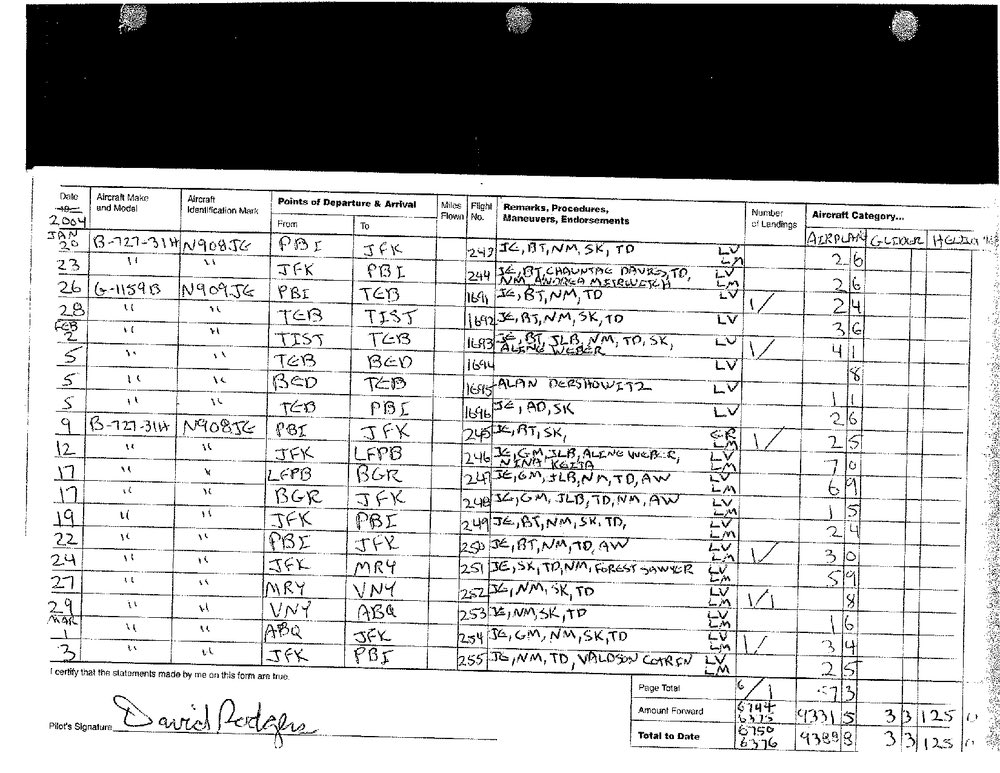 Date Aircraft Make and Model Aircraft Identification Mark Points of Departure & Arrival Miles Flown Flight No. Remarks, Procedures, Maneuvers, Endorsements Number of Landings Aircraft Category...
2004 From To AIRPLANE GLIDER
JAN 20 B-727-31H N908JE PBI JFK 243 JE, BT, NM, SK, TD LV LM 2 6
23 " " JFK PBI 244 JE, BT, CHAUNTAE DAVIES, TD, NM, LV LM 2 6
26 G-1159B N909JE PBI TEB 1691 JE, BT, NM, TD LV 1/ 2 4
28 " " TEB TIST 1692 JE, BT, NM, SK, TD LV 3 6
FEB 2 " " TIST TEB 1693 JE, BT, JLB, NM, TD, SK, ALINE WEBER LV 1/ 4 1
5 " " TEB BED 1694 LV 8
5 " " BED TEB 1695 ALAN DERSHOWITZ LV 1 1
5 " " TEB PBI 1696 JE, AD, SK LV 2 6
9 B-727-31H N908JE PBI JFK 245 JE, BT, SK, LM 1/ 2 5
12 " " JFK LFPB 246 JE, GM, JLB, ALINE WEBER, NINA KEITA LV LM 7 0
17 " " LFPB BGR 247 JE, GM, JLB, NM, TD, AW LV LM 6 9
17 " " BGR JFK 248 JE, GM, JLB, TD, NM, AW LV LM 1 5
19 " " JFK PBI 249 JE, BT, NM, SK, TD, LV LM 2 4
22 " " PBI JFK 250 JE, BT, NM, TD, AW LV LM 1/ 3 0
24 " " JFK MRY 251 JE, SK, TD, NM, FOREST SAWYER LV LM 5 9
27 " " MRY VNY 252 JE, NM, SK, TD LV LM 1/1 8
29 " " VNY ABQ 253 JE, NM, SK, TD LV LM 1 6
MAR 1 " " ABQ JFK 254 JE, GM, NM, SK, TD LV LM 1/ 3 4
3 " " JFK PBI 255 JE, NM, TD, VALDSON LV LM 2 5
I certify that the statements made by me on this form are true.
Page Total 6/1 57 3
Amount Forward 6744 6375 9331 5 3 3 125 0
Pilot's Signature David Rodgers
Total to Date 6750 6376 9388 8 3 3 125 0